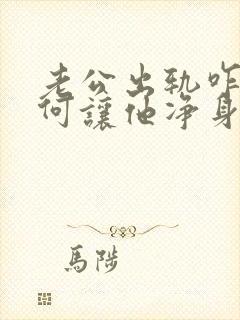 老公出轨咋
何讓他净身
馬陟